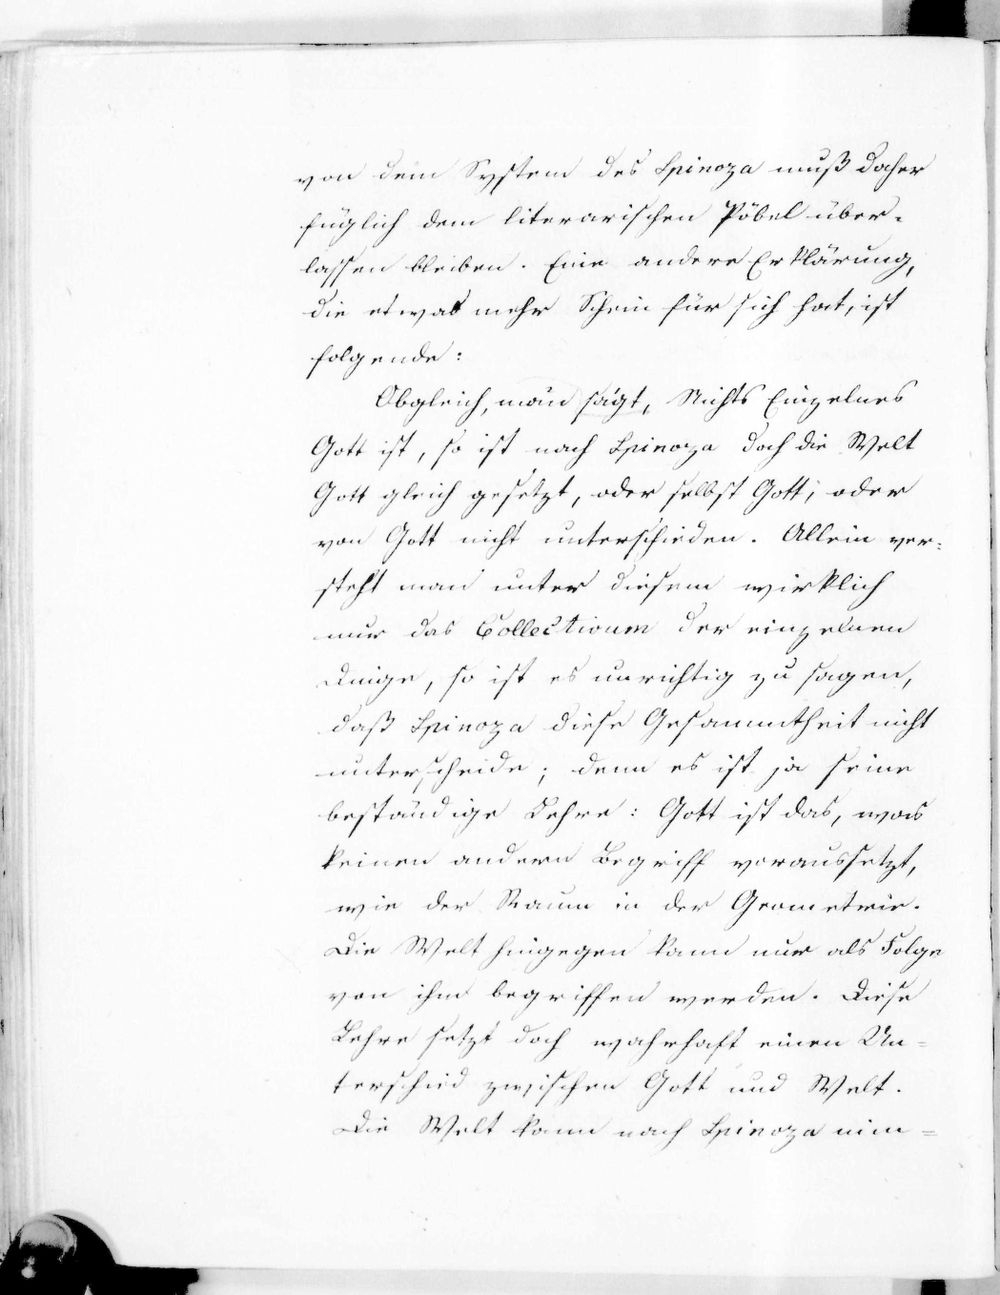 von dem System des Spinoza muß daher
füglich dem literarischen Pöbel über-
lassen bleiben. Eine andere Erklärung,
die etwas mehr Schein für sich hat, ist
folgende:
Obgleich, man sagt, Nichts Einzelnes
Gott ist, so ist nach Spinoza doch die Welt
Gott gleich gesetzt, oder selbst Gott, oder
von Gott nicht unterschieden. Allein ver-
steht man unter diesem wirklich
nur das Collectivum der einzelnen
Dinge, so ist es unrichtig zu sagen,
daß Spinoza diese Gesammtheit nicht
unterscheide; denn es ist ja seine
beständige Lehre: Gott ist das, was
keinen andern Begriff voraussetzt,
wie der Raum in der Geometrie.
Die Welt hingegen kann nur als Folge
von ihm begriffen werden. Diese
Lehre setzt doch wahrhaft einen Un-
terschied zwischen Gott und Welt.
Die Welt kann nach Spinoza nim-